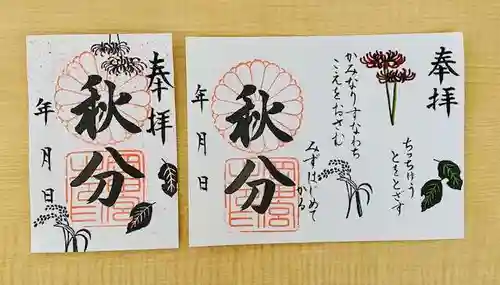 奉拝
秋分
年月日
奉拝
ちっちゅう
とをとざす
かみなりすなわち
こえをおさむ
秋分
みずはじめて
かる
年月日